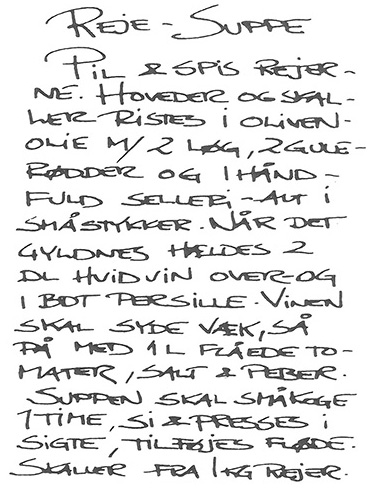 REJE-SUPPE
PIL & SPIS REJER-
NE. HOVEDER OG SKAL-
LER RISTES I OLIVEN-
OLIE M/ 2 LØG, 2 GULE-
RØDDER OG 1 HÅND-
FULD SELLERI - ALT I
SMÅSTYKKER. NÅR DET
GYLDNES HÆLDES 2
DL HVIDVIN OVER - OG
1 BDT PERSILLE. VINEN
SKAL SYDE VÆK, SÅ
PÅ MED 1 L FLÅEDE TO-
MATER, SALT & PEBER.
SUPPEN SKAL SMÅKOGE
1 TIME, SI & PRESSES I
SIGTE, TILFØJES FLØDE.
SKALLER FRA 1 KG REJER.